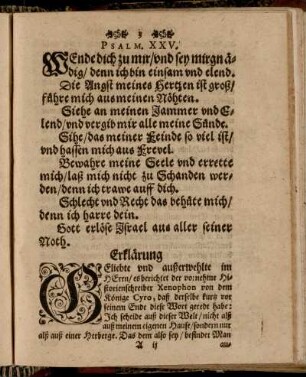 3
PSALM. XXV.
WEnde dich zu mir/vnd sey mir gnä-
dig/ denn ich bin einsam vnd elend.
Die Angst meines Hertzen ist groß/
führe mich aus meinen Nöhten.
Siehe an meinen Jammer vnd E-
lend/vnd vergib mir alle meine Sünde.
Sihe/das meiner Feinde so viel ist/
vnd hassen mich aus Frevel.
Bewahre meine Seele vnd errette
mich/laß mich nicht zu Schanden wer-
den/denn ich trawe auff dich.
Schlecht vnd Recht das behüte mich/
denn ich harre dein.
Gott erlöse Israel aus aller seiner
Noth.
Erklärung
GEliebte vnd außerwehlte im
HErrn/es berichtet der vornehme Hi-
storienschreiber Xenophon von dem
Könige Cyro, daß derselbe kurtz vor
seinem Ende diese Wort geredt habe:
Ich scheide auß dieser Welt/ nicht alß
auß meinem eigenen Hause/sondern nur
alß auß einer Herberge. Das dem also sey/ befindet Man
A ij